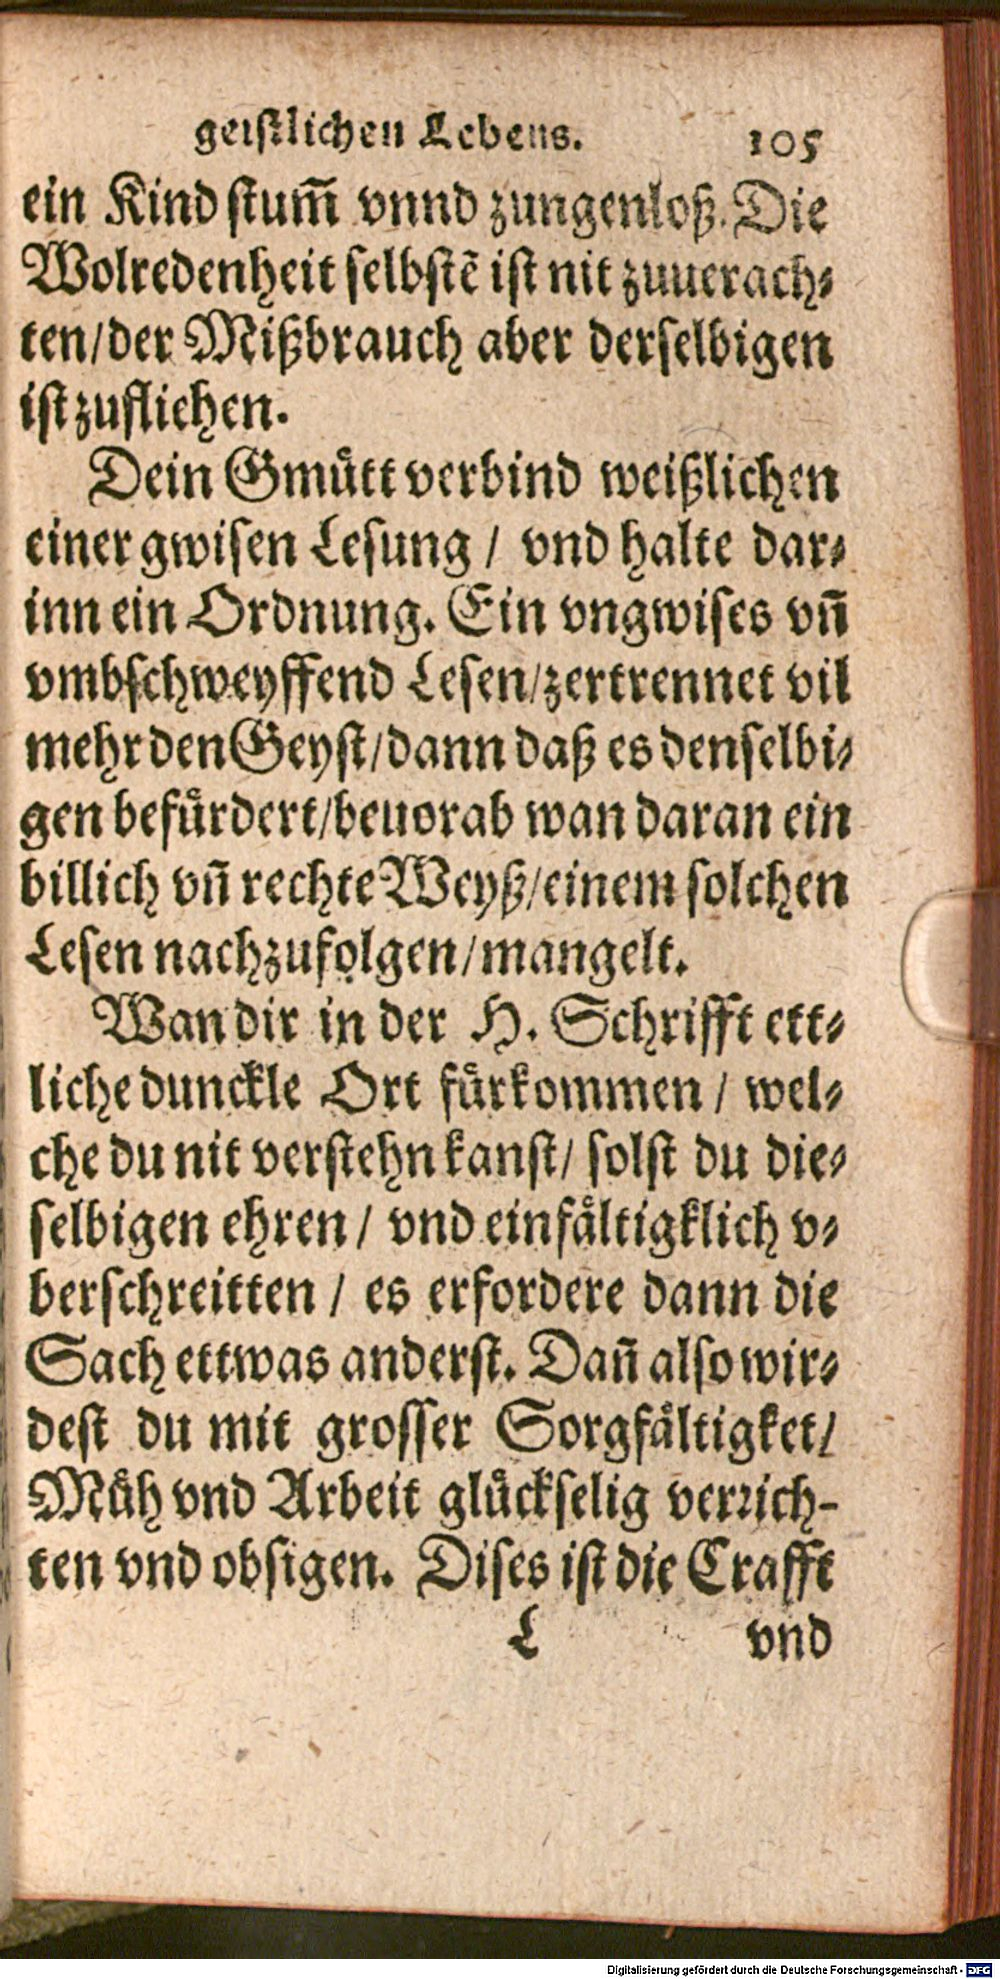 geistlichen Lebens. 105
ein Kind stum̃ vnnd zungenloß. Die
Wolredenheit selbstẽ ist nit zuuerach⸗
ten/der Mißbrauch aber derselbigen
ist zufliehen.
Dein Gmuͤtt verbind weißlichen
einer gwisen Lesung / vnd halte dar⸗
inn ein Ordnung. Ein vngwises vñ
vmbschweyffend Lesen/zertrennet vil
mehr den Geyst/dann daß es denselbi⸗
gen befuͤrdert/beuorab wan daran ein
billich vñ rechte Weyß/einem solchen
Lesen nachzufolgen/mangelt.
Wan dir in der H. Schrifft ett⸗
liche dunckle Ort fuͤrkommen / wel⸗
che du nit verstehn kanst/ solst du die⸗
selbigen ehren / vnd einfaͤltigklich v⸗
berschreitten / es erfordere dann die
Sach ettwas anderst. Dañ also wir⸗
dest du mit grosser Sorgfaͤltigket/
Muͤh vnd Arbeit gluͤckselig verrich-
ten vnd obsigen. Dises ist die Crafft
L vnd
Digitalisierung gefördert durch die Deutsche Forschungsgemeinschaft - DFG